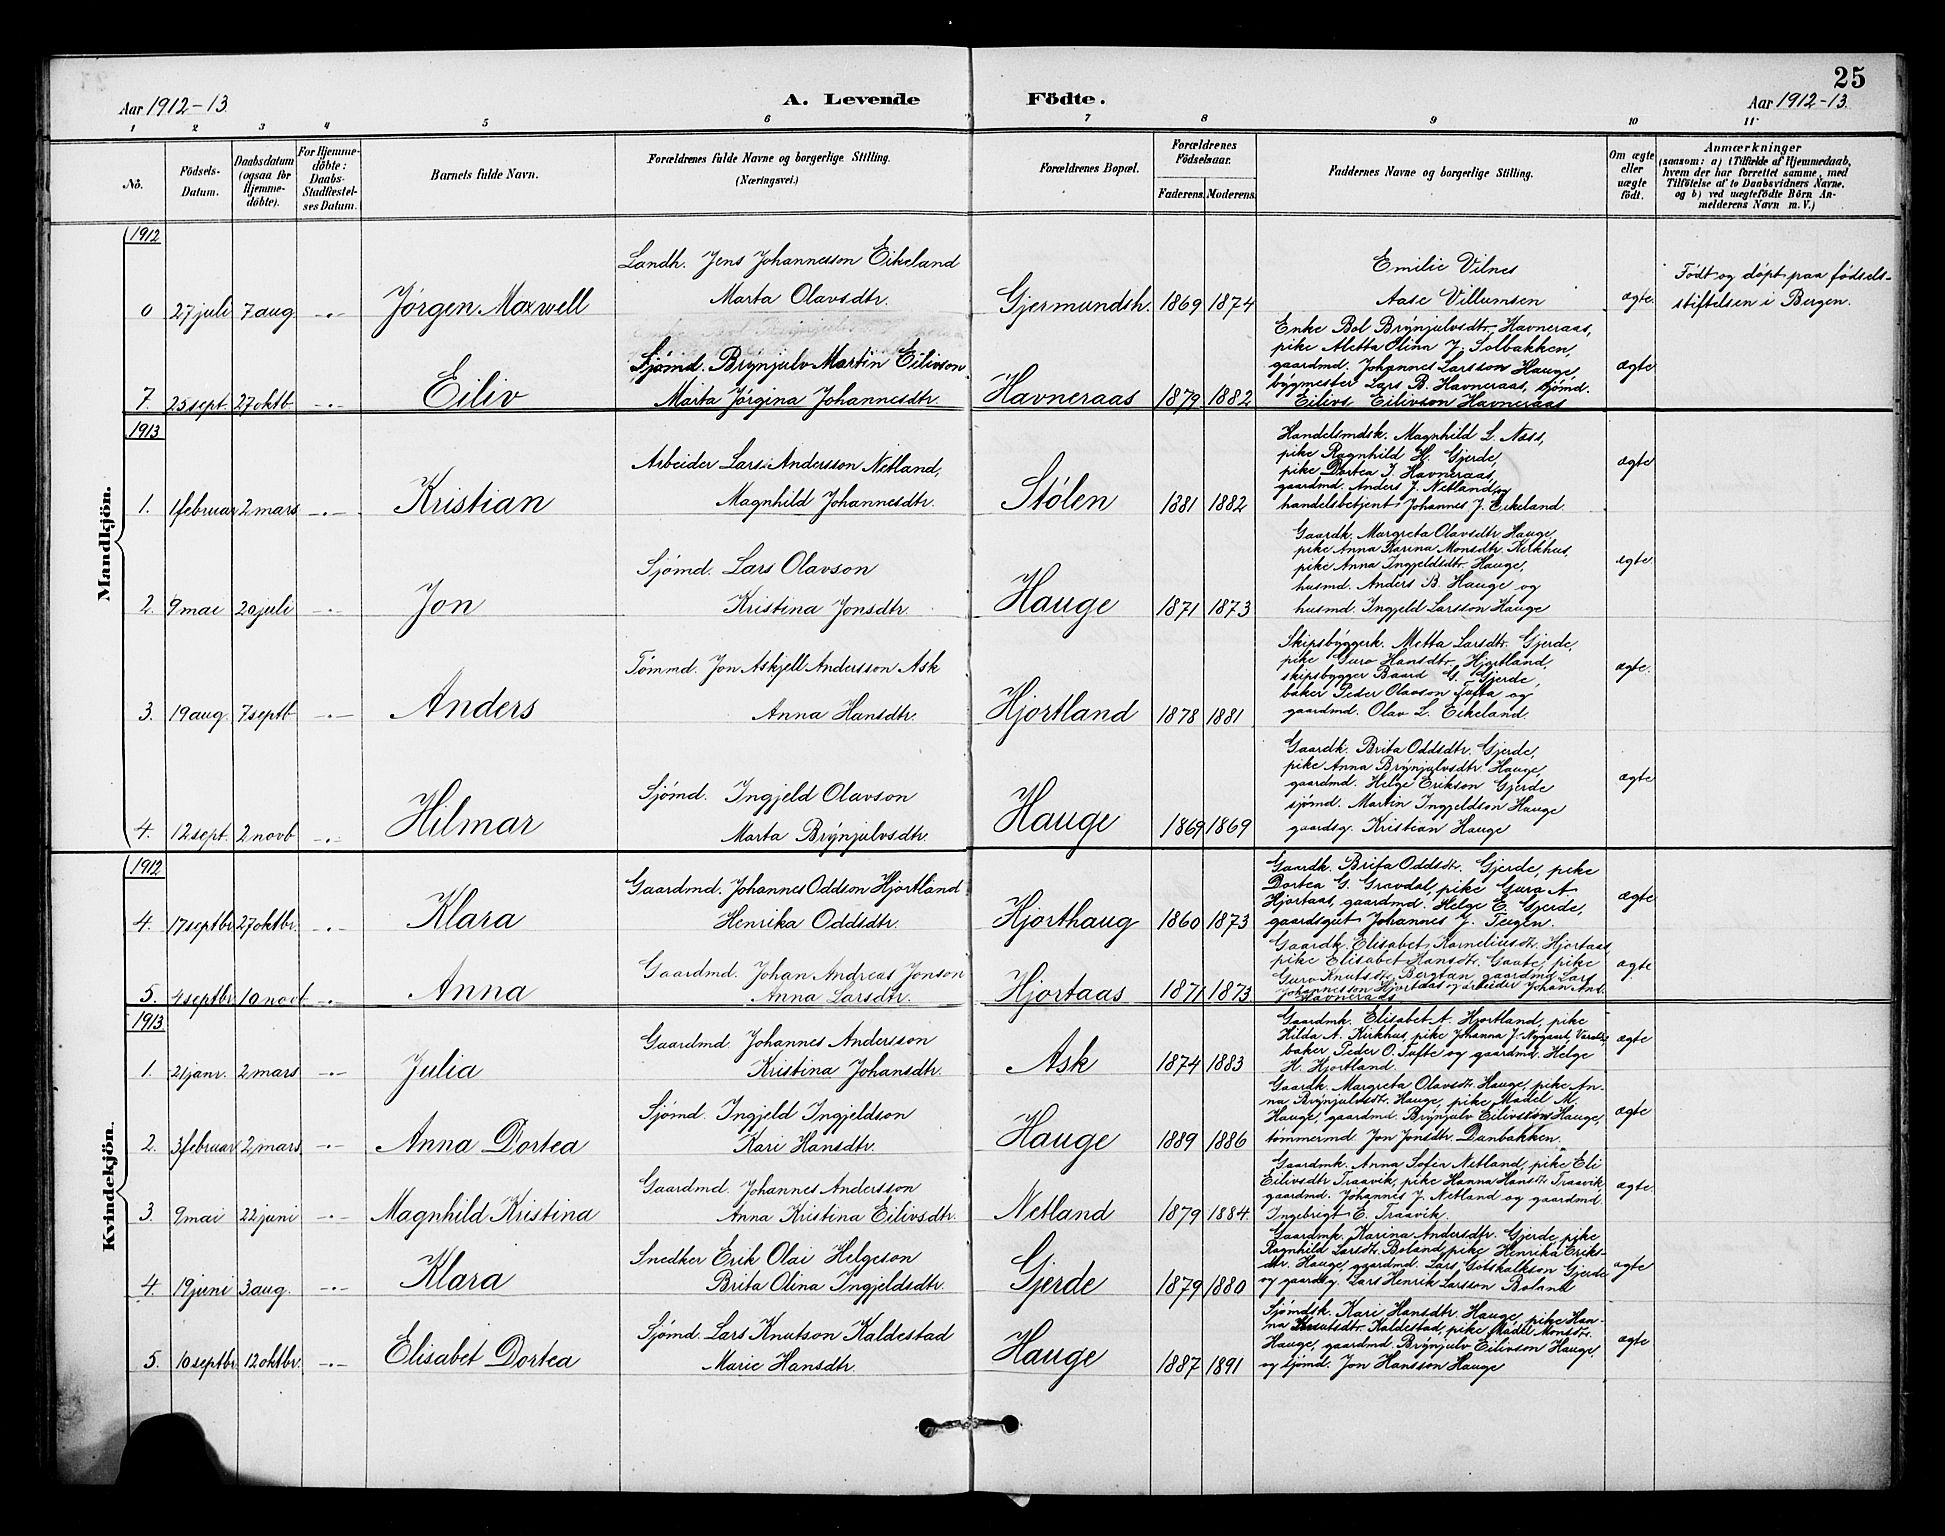 25
Aar 1912-13.
A. Levende Födte.
Aar 1912-13.
1 2 3 4 5 6 7 8 9 10 11
No.
Födsels-Datum.
Daabsdatum (ogsaa for Hjemme-döbte).
For Hjemme-döbte: Daabs-Stadfæstel-ses Datum.
Barnets fulde Navn.
Forældrenes fulde Navne og borgerlige Stilling.
(Næringsvei.)
Forældrenes Bopæl.
Forældrenes Födselsaar.
Faderens. Moderens.
Faddernes Navne og borgerlige Stilling.
Om ægte eller uægte födt.
Anmærkninger
(saasom: a) i Tilfælde af Hjemmedaab,
hvem der har forrettet samme, med
Tilföielse af to Daabsvidners Navne,
og b) ved uægtefödte Börn An-
melderens Navn m. V.)
Mandkjön.
1912
Landh. Jens Johannesson Eikeland
Marta Olavsdtr.
0 27 juli 7 aug -"- Jørgen Maxwell
Gjermundsh. 1869 1874
Emilie Vilnes
Aase Villumsen
ægte.
Født og døpt paa fødsels-
stiftelsen i Bergen.
Sjømd. Brynjulv Martin Eilivson
Marta Jørgina Johannesdtr.
7. 25 sept. 27 oktb. -"- Eiliv
Havneraas 1879 1882
Enke Bol Brynjulvsdtr. Havneraas,
pike Aletta Olina J. Solbakken,
gaardmd. Johannes Larsson Hauge,
bygmester Lars B. Havneraas, sjømd.
Eilivs Eilivson Havneraas
ægte
1913
Arbeider Lars Andersson Netland,
Magnhild Johannesdtr.
1. 1 februar 2 mars -"- Kristian
Stølen 1881 1882
Handelsmdsk. Magnhild L. Næss,
pike Ragnhild H. Gjerde,
pike Dortea I. Havneraas,
gaardmd. Anders J. Netland og
handelsbetjent Johannes J. Eikeland.
ægte
Sjømd. Lars Olavson
Kristina Jonsdtr.
2. 9 mai 20 juli -"- Jon
Hauge 1871 1873
Gaardk. Margreta Olavsdtr. Hauge,
pike Anna Karina Monsdtr. Kirkhus,
pike Anna Ingjeldsdtr. Hauge,
husmd. Anders B. Hauge og
husmd. Ingjeld Larsson Hauge
egte
Tømmd. Jon Askjell Andersson Ask
Anna Hansdtr.
3. 19 aug. 7 septb -"- Anders
Hjortland 1878 1881
Skipsbyggerk. Metta Larsdtr. Gjerde,
pike Guro Hansdtr. Hjortland,
skipsbygger Baard G. Gjerde,
baker Peder Olavson Tufta og
gaardmd. Olav L. Eikeland.
ægte.
Sjømd. Ingjeld Olavson
Marta Brynjulvsdtr.
4. 12 sept. 2 novb -"- Hilmar
Hauge 1869 1869
Gaardk. Brita Oddsdtr. Gjerde,
pike Anna Brynjulvsdtr. Hauge,
gaardmd. Helge Erikson Gjerde
sjømd. Martin Ingjeldson Hauge
gaardsg. Kristian Hauge
ægte
Kvindekjön.
1912
Gaardmd. Johannes Oddson Hjortland
Henrika Oddsdtr.
4. 17 septbr 27 oktbr. -"- Klara
Hjorthaug 1860 1873
Gaardk. Brita Oddsdtr. Gjerde, pike
Dortea G. Gravdal, pike Guro A
Hjortaas, gaardmd. Helge E. Gjerde,
gaardsgut Johannes J. Teigen.
ægte
Gaardmd. Johan Andreas Jonson
Anna Larsdtr.
5. 4 septbr 10 novb -"- Anna
Hjortaas 1871 1873
Gaardk. Elisabet Korneliusdt. Hjortaas
pike Elisabet Hansdt. Gaate, pike
Guro Knutsdt. Bergtan gaardmd Lars
Johannesson Hjortaas og arbeider Johan And.
Havneraas
ægte
1913
Gaardmd. Johannes Andersson
Kristina Johansdtr.
1. 21 janr. 2 mars -"- Julia
Ask 1874 1883
Gaardmk. Elisabet A. Hjortland, pike
Hilda A. Kirkhus, pike Johanna J. Nygaard,
baker Peder O. Tufte og gaardmd. Helge
H. Hjortland.
ægte
Sjømd. Ingjeld Ingjeldson
Kari Hansdtr.
2. 3 februar 2 mars -"- Anna Dortea
Hauge 1889 1886
Gaardk. Margreta Olavsdt. Hauge, pike An-
na Brynjulvsdt. Hauge, pike Madel M.
Hauge, gaardmd. Brynjulv Eilivsson Hauge,
tømmermd. Jon Jonsdtr. Danbakken.
ægte
Gaardmd. Johannes Andersson
Anna Kristina Eilivsdtr.
3. 9 mai 22 juni -"- Magnhild Kristina
Netland 1879 1884.
Gaardmk. Anna Sofia Netland, pike Eli
Eilivsdtr Traavik, pike Hanna Hansdt. Traavik
gaardmd. Johannes J. Netland og gaardmd.
Ingebrigt E. Traavik.
ægte.
Snedker Erik Olai Helgeson
Brita Olina Ingjeldsdtr.
4. 19 juni 3 aug. -"- Klara
Gjerde 1879 1880
Gaardmk. Karina Andersdtr. Gjerde, pike
Ragnhild Larsdt. Boland, pike Henrika Eriks-
dtr. Hauge, gaardmd. Lars Gotskalkson Gjerde
og gaardsg. Lars Henrik Larsson Boland
ægte
Sjømd. Lars Knutson Kaldestad
Marie Hansdtr.
5. 10 septbr 12 oktbr. -"- Elisabet Dortea
Hauge 1887 1891
Sjømdsk. Kari Hansdtr. Hauge, pike Han-
na Knutsdtr. Kaldestad, pike Madel Monsdt.
Hauge, gaardmd. Brynjulv Eilivson Hauge,
og sjømd. Jon Hansson Hauge
ægte